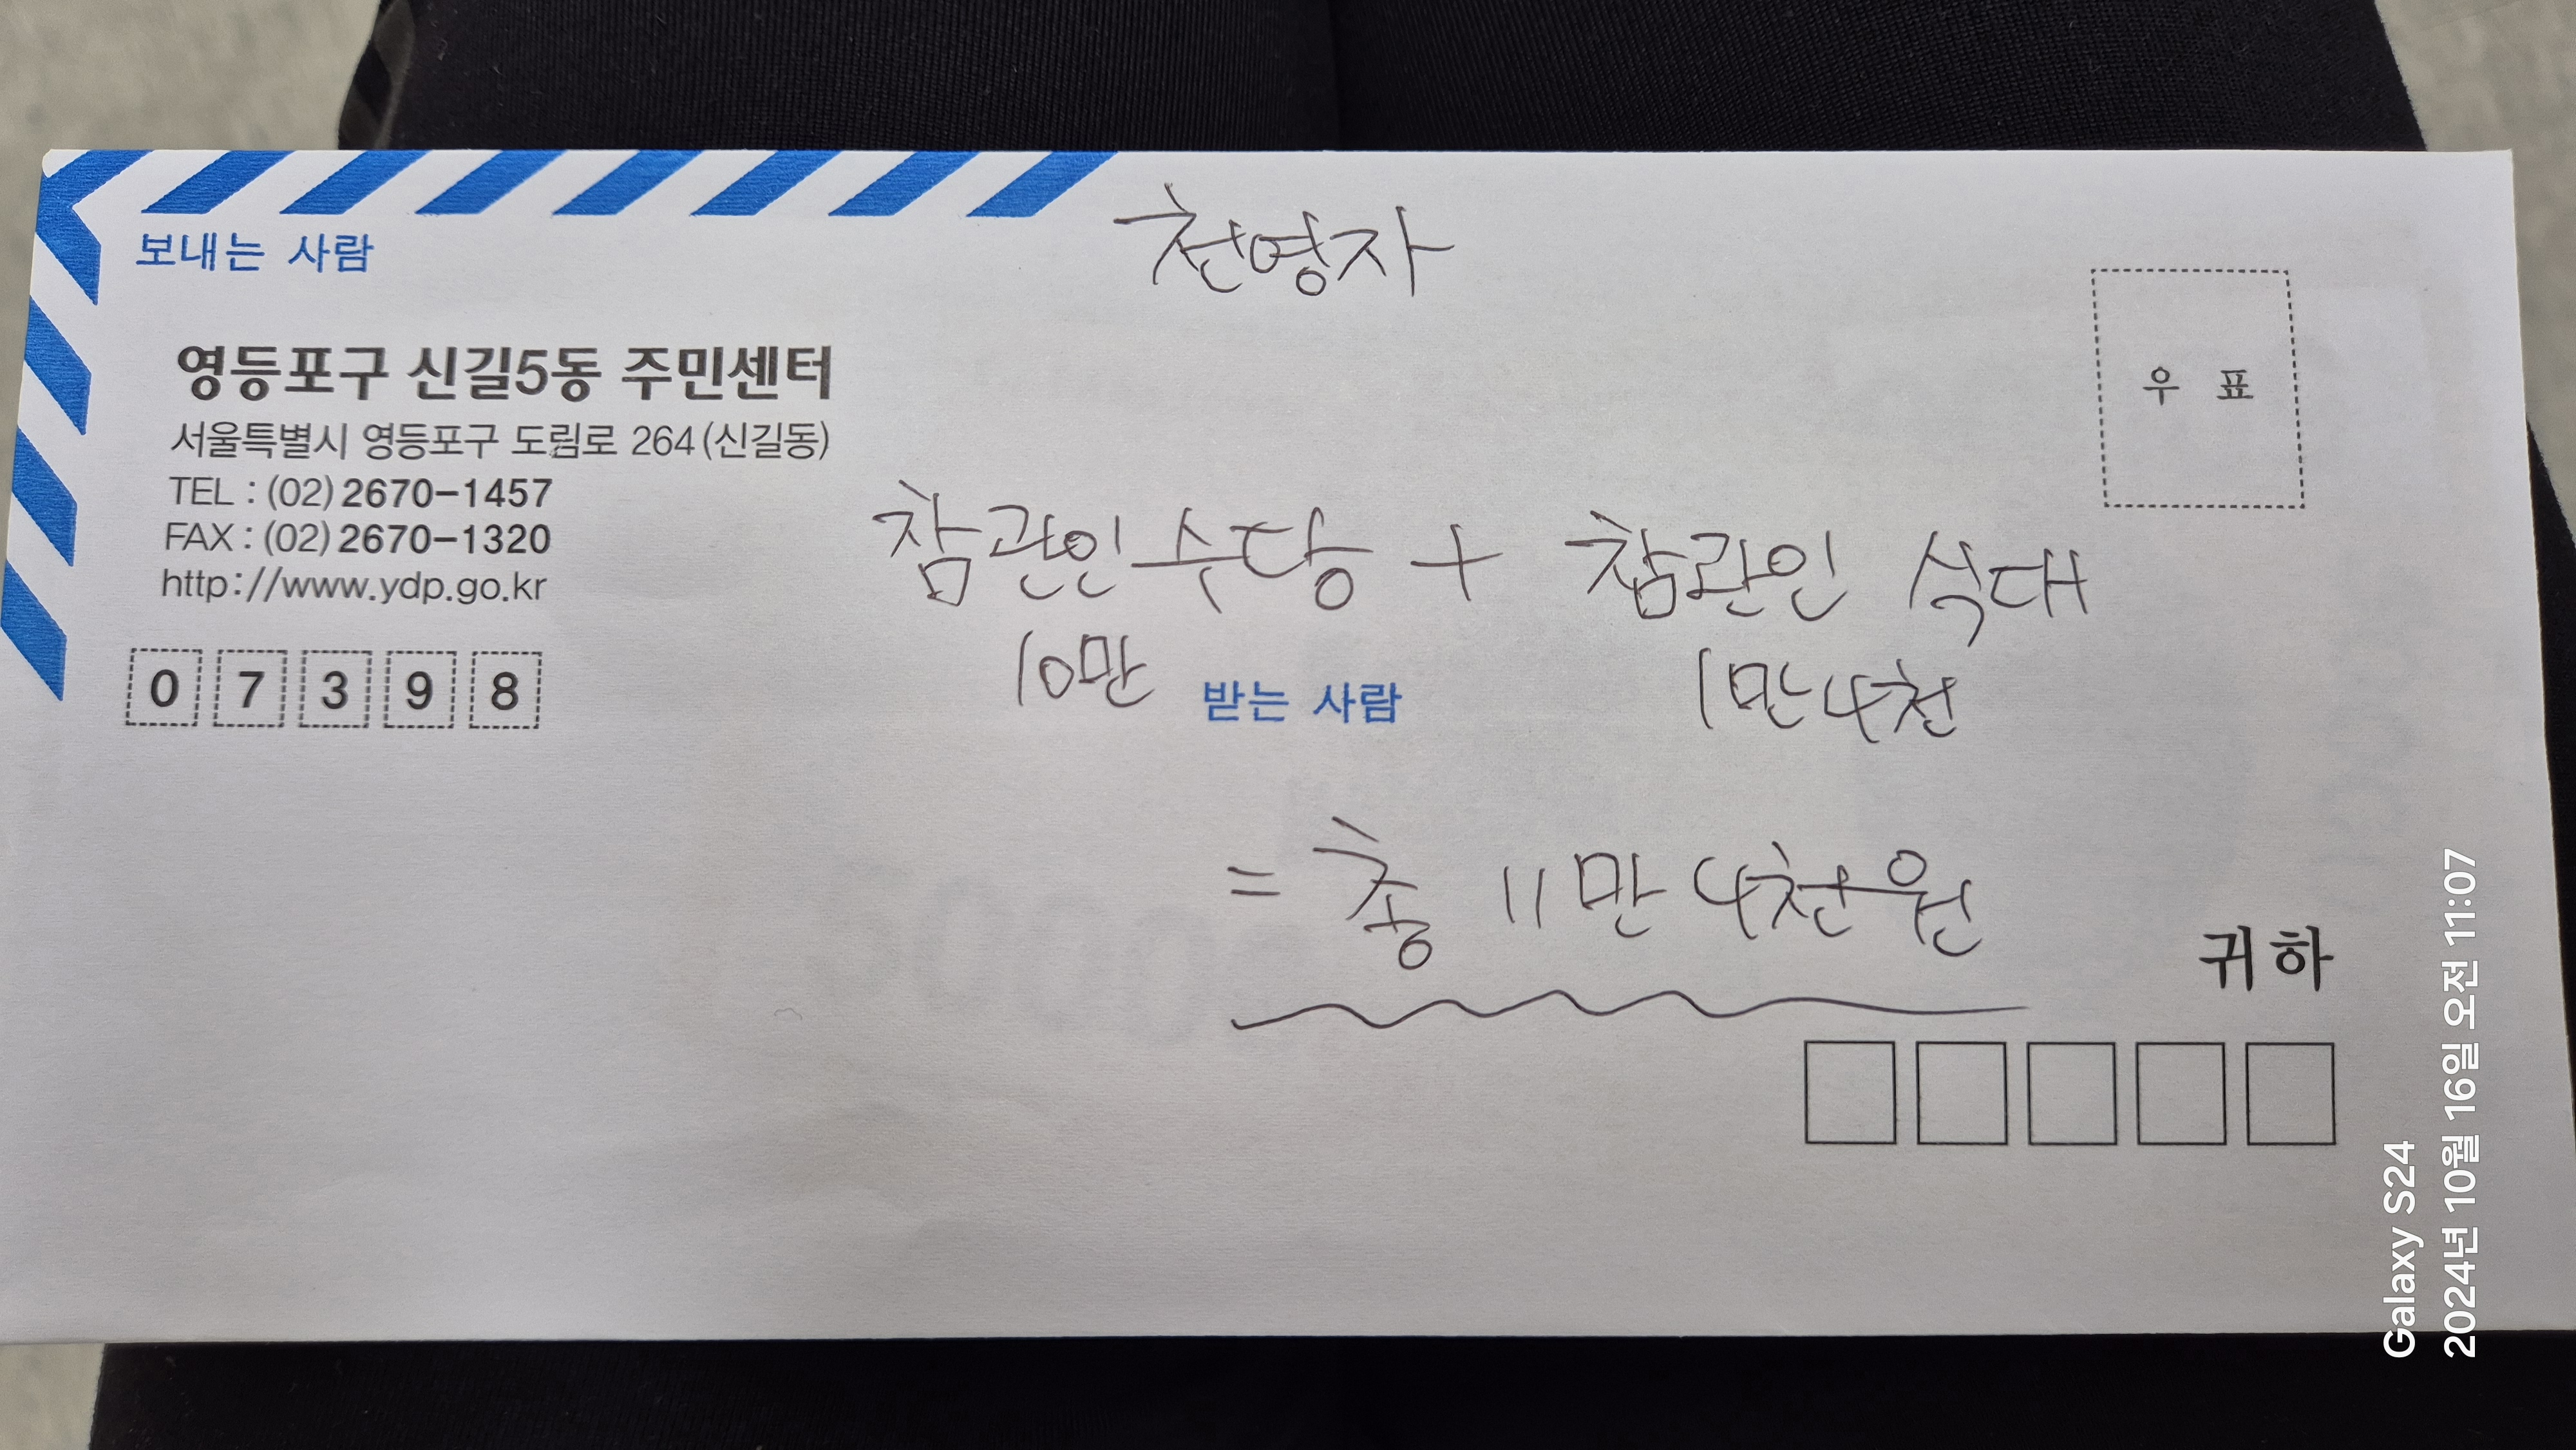 천영자
보내는 사람
영등포구 신길5동 주민센터
서울특별시 영등포구 도림로 264(신길동)
TEL : (02) 2670-1457
FAX : (02) 2670-1320
http://www.ydp.go.kr
0 7 3 9 8
우 표
참관인수당 + 참관인 식대
10만 1만4천
받는 사람
= 총 11만 4천원
귀하
Galaxy S24
2024년 10월 16일 오전 11:07